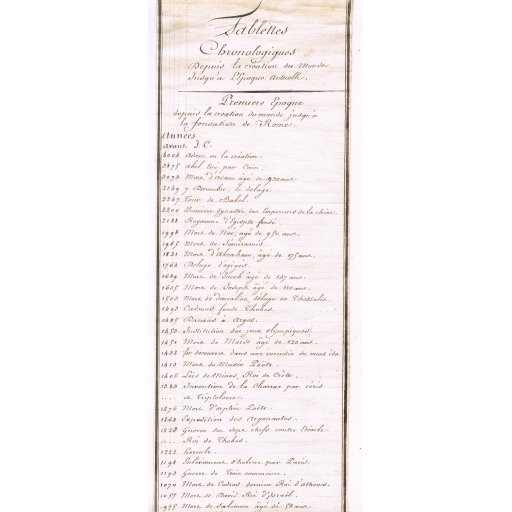 Tablettes
Chronologiques
Depuis la création du Monde
Jusqu'a l'Epoque actuelle.
Premiere Epoque
depuis la creation du monde jusqu'à
la fondation de Rome.
Années
avant J. C.
4004 Adam ou la création.
3875 abel tué par Cain.
3074 Mort d'adam âgé de 930 ans
2349 7 Decembre, le deluge
2247 Tour de Babel.
2200 Premiere dynastie des Empereurs de la chine.
2188 Royaume d'Egypte fondé
1998 Mort de Noé, agé de 950 ans.
1965 Mort de Semiramis.
1821 Mort d'Abraham, âgé de 175 ans.
1764 Deluge d'ogiges
1689 Mort de Jacob âgé de 147 ans.
1635 Mort de Joseph âgé de 110 ans.
1503 Mort de deucalion, deluge en Thessalie.
1493 Cadmus fonde Thebes.
1485 Danaüs à Argos.
1453 Institution des jeux olympiques
1451 Mort de Moïse âgé de 120 ans.
1432 fer decouvert dans une incendie du mont ida
1413 Mort de Musée Poëte.
1406 Lois de Minos, Roi de Crète.
1383 Invention de la Charue par cérès
.... et Triptoleme.
1276 Mort d'orphée Poëte.
1263 Expedition des Argonautes.
1228 Guerre des sept chefs contre Eteocle
.... Roi de Thebes.
1222 hercule.
1198 Enlèvement d'helene par Paris.
1193 Guerre de Troie commence.
1070 Mort de Codrus dernier Roi d'athenes.
1055 Mort de David Roi d'Israël.
975 Mort de Salomon âgé de 58 ans.